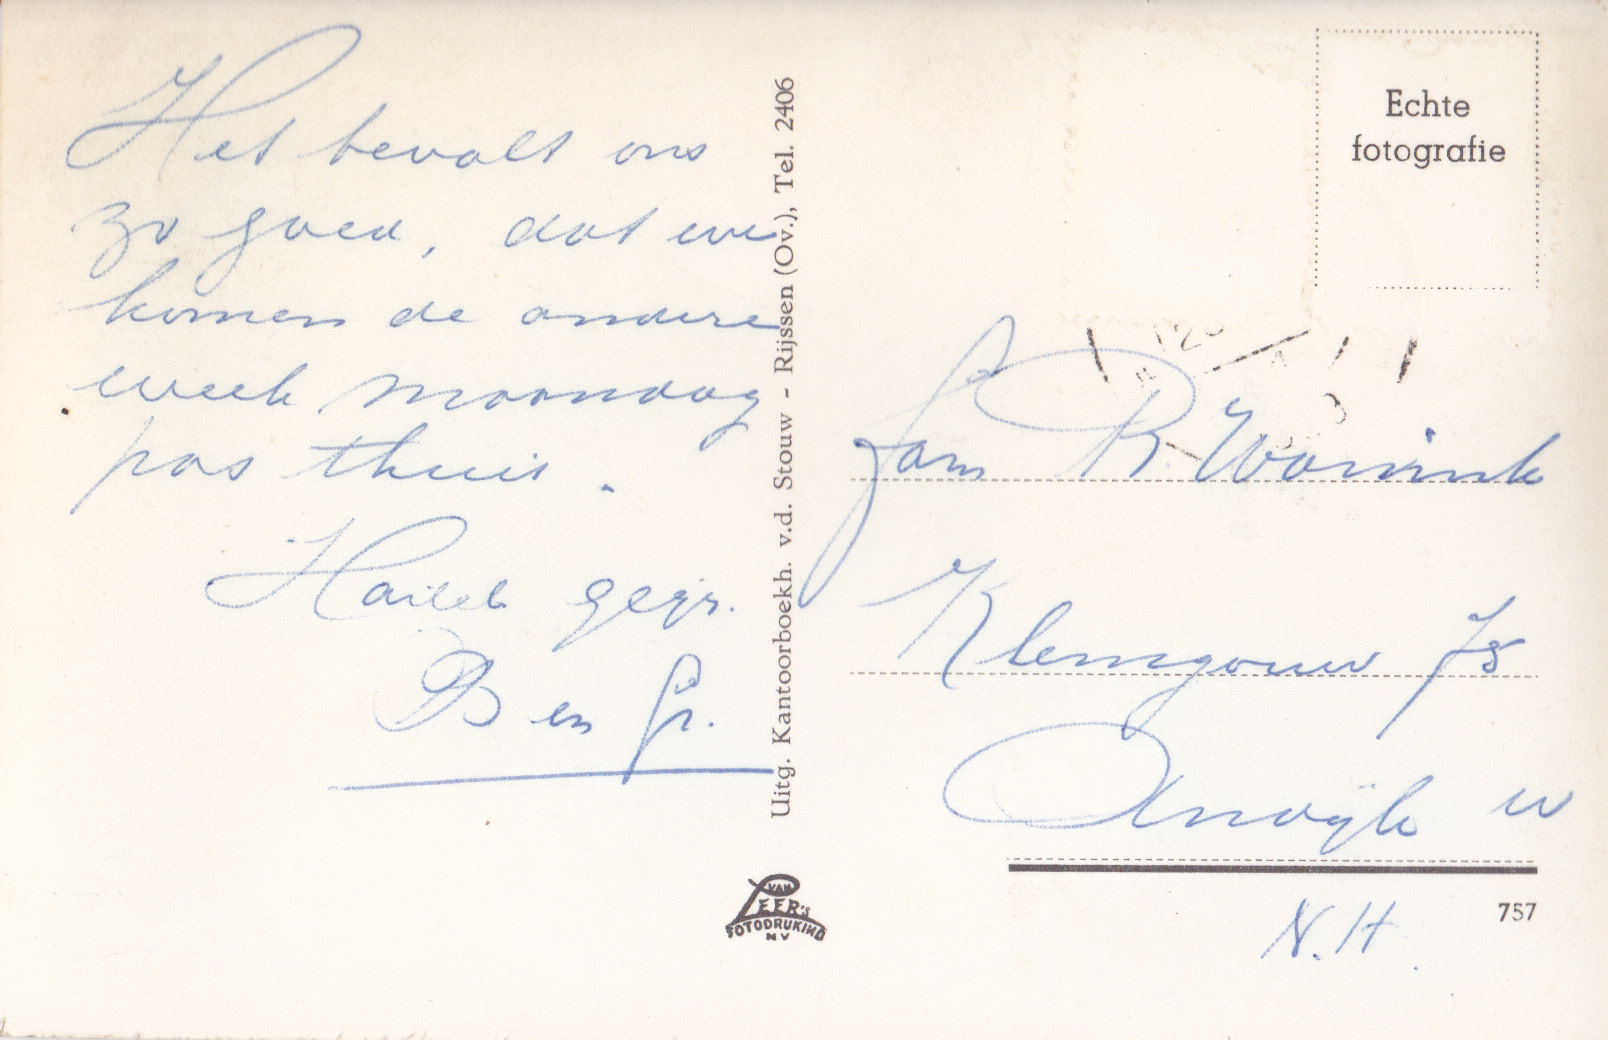 Het bevalt ons
zo goed, dat we
komen de andere
week maandag
pas thuis.
Hartel gegr.
B en Gr.
Uitg. Kantoorboekh. v.d. Stouw - Rijssen (Ov.), Tel. 2406
VAN
LEER'S
FOTODRUKIND
NV
Echte
fotografie
Fam B
Kleingouw
Andijk W
N.H.
757